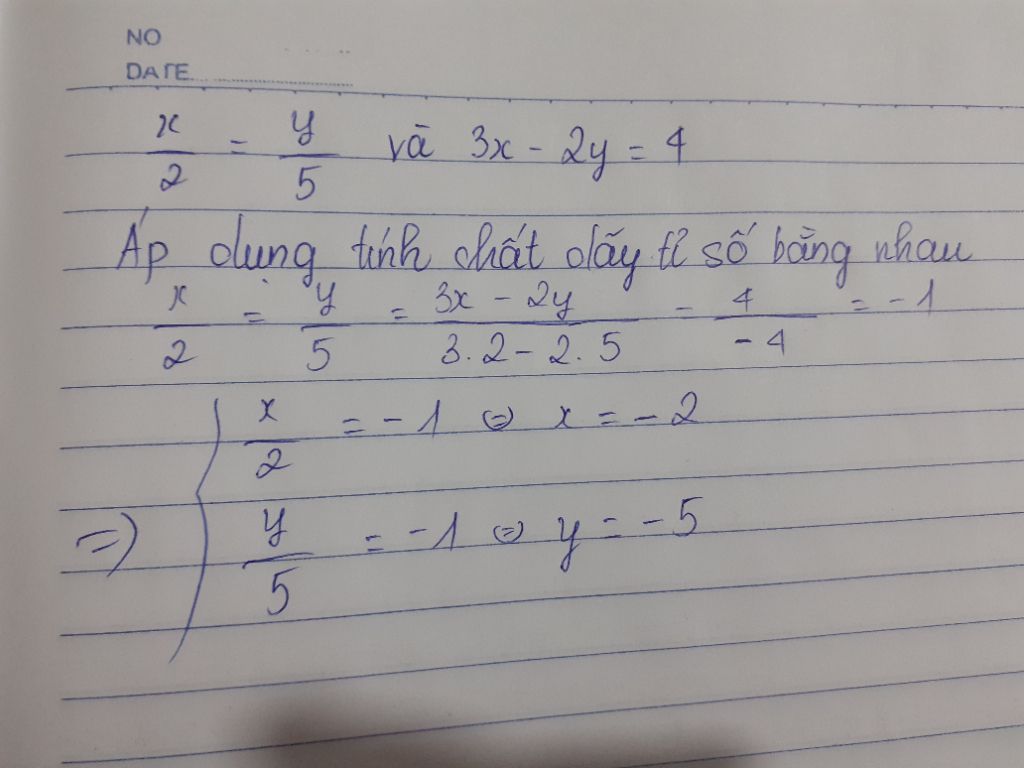 NO
DATE
x/2 = y/5 và 3x - 2y = 4
Áp dụng tính chất dãy tỉ số bằng nhau
x/2 = y/5 = (3x - 2y)/(3.2 - 2.5) = 4/-4 = -1
=> { x/2 = -1 ⇔ x = -2
y/5 = -1 ⇔ y = -5